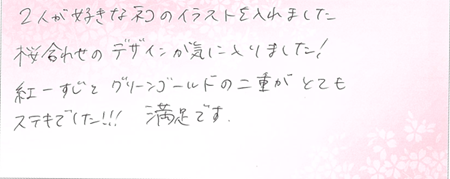 2人が好きなネコのイラストを入れました
桜合わせのデザインが気に入りました!
紅一すじとグリーンゴールドの二重がとても
ステキでした!!! 満足です.